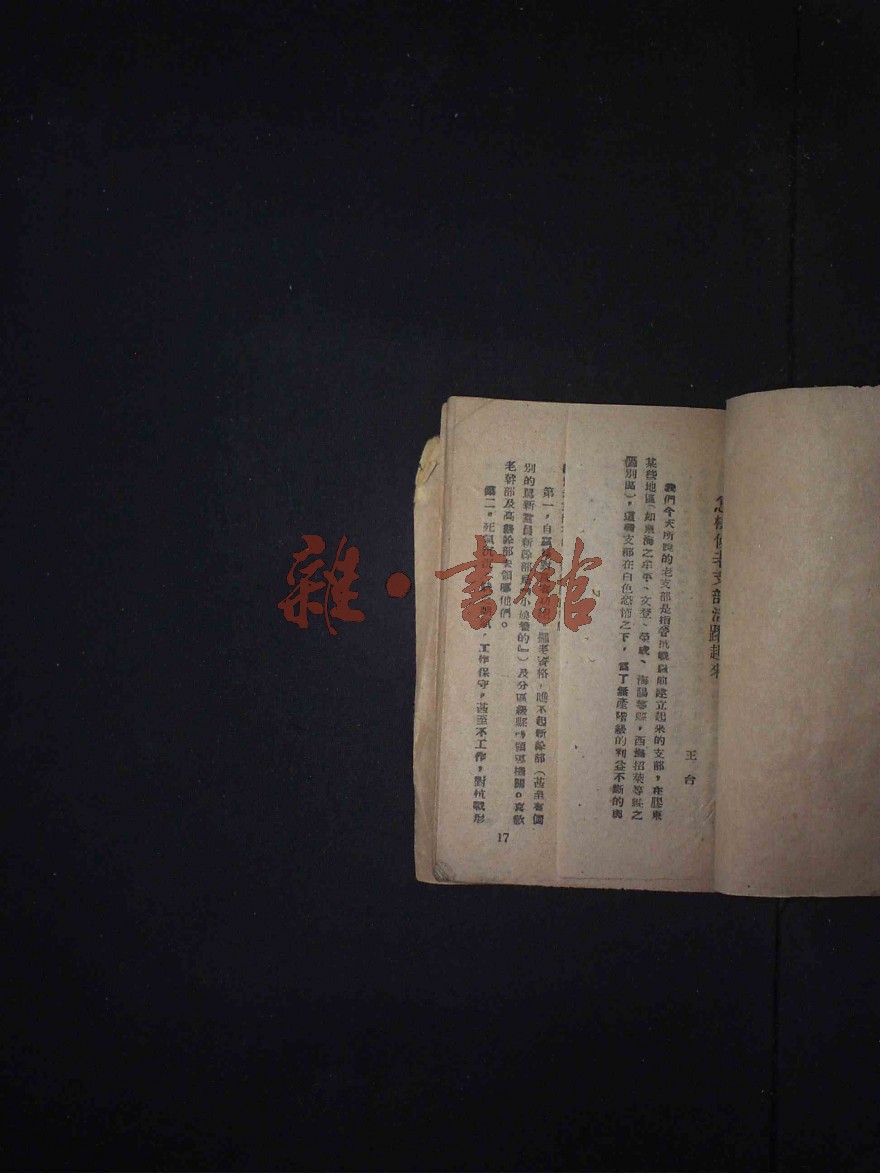 怎樣使老支部活躍起來
王台
我們今天所說的老支部是指着抗戰前建立起來的支部，在膠東
某些地區（如東海之牟平、文登、榮成、海陽等縣，西海招萊等縣之
個別區），這種支部在白色恐怖之下，爲了無產階級的利益不斷的與
第一，自
老資格，瞧不起新幹部（甚至有個
別的罵新黨員新幹部是『小燒養的』）及分區級縣的領導機關。喜歡
老幹部及高級幹部去領導他們。
第二，死氣沉沉
，工作保守，甚至不工作，對抗戰形
17
雜·書館